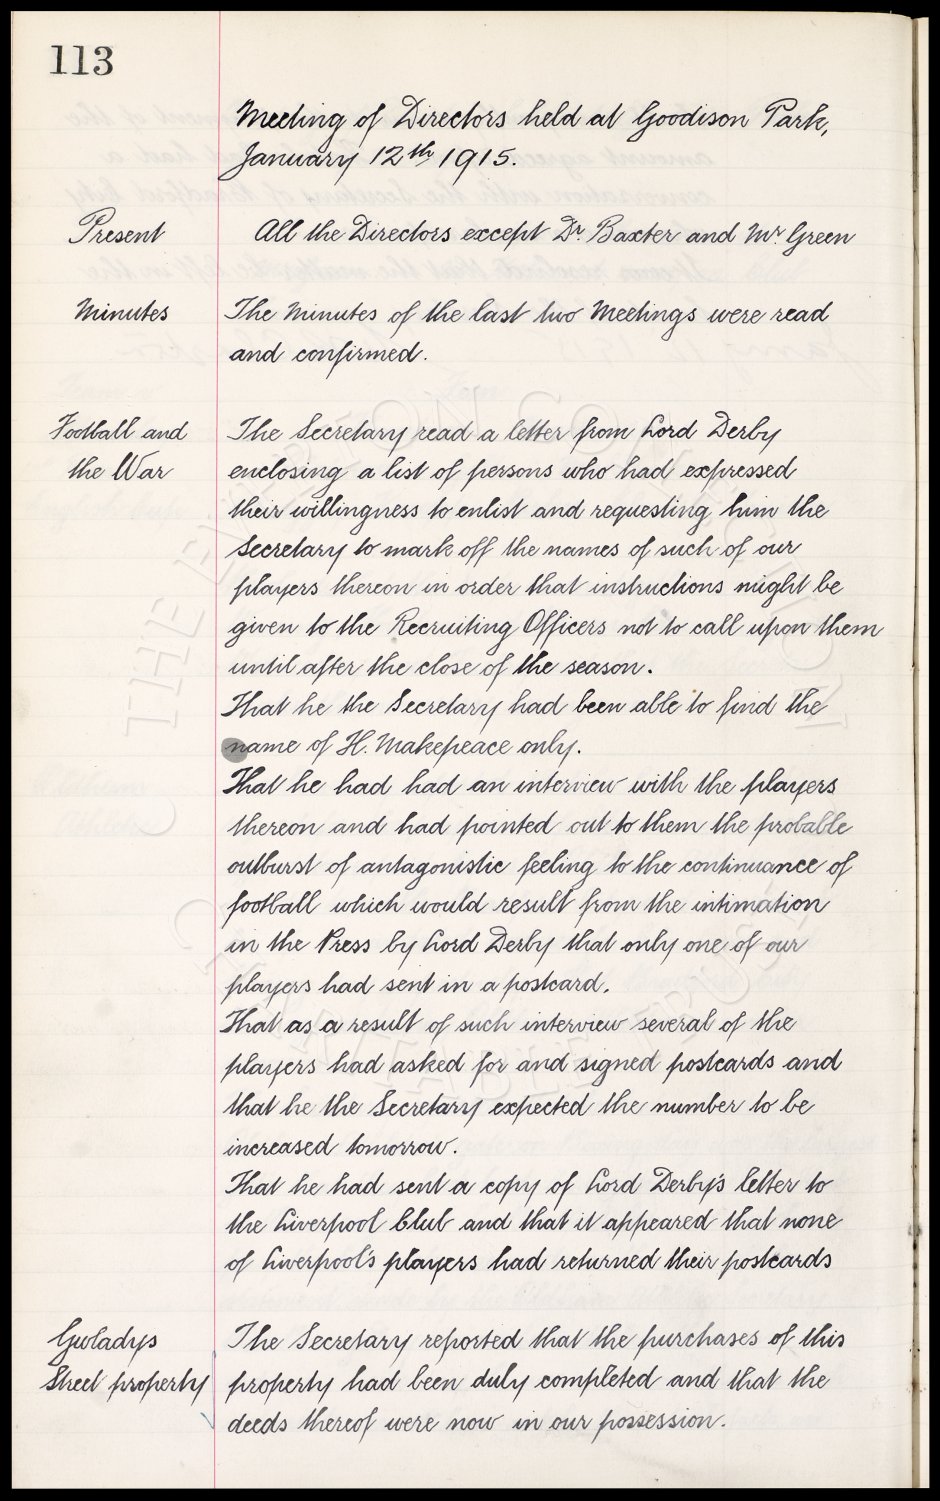 113
Meeting of Directors held at Goodison Park,
January 12th 1915.
Present
All the Directors except Dr. Baxter and Mr. Green
Minutes
The Minutes of the last two Meetings were read
and confirmed.
Football and
the War
The Secretary read a letter from Lord Derby
enclosing a list of persons who had expressed
their willingness to enlist and requesting him the
Secretary to mark off the names of such of our
players thereon in order that instructions might be
given to the Recruiting Officers not to call upon them
until after the close of the season.
That he the Secretary had been able to find the
name of H. Makepeace only.
That he had had an interview with the players
thereon and had pointed out to them the probable
outburst of antagonistic feeling to the continuance of
football which would result from the intimation
in the Press by Lord Derby that only one of our
players had sent in a postcard.
That as a result of such interview several of the
players had asked for and signed postcards and
that he the Secretary expected the number to be
increased tomorrow.
That he had sent a copy of Lord Derby's letter to
the Liverpool Club and that it appeared that none
of Liverpool's players had returned their postcards
Gwladys
Street property
The Secretary reported that the purchases of this
property had been duly completed and that the
deeds thereof were now in our possession.